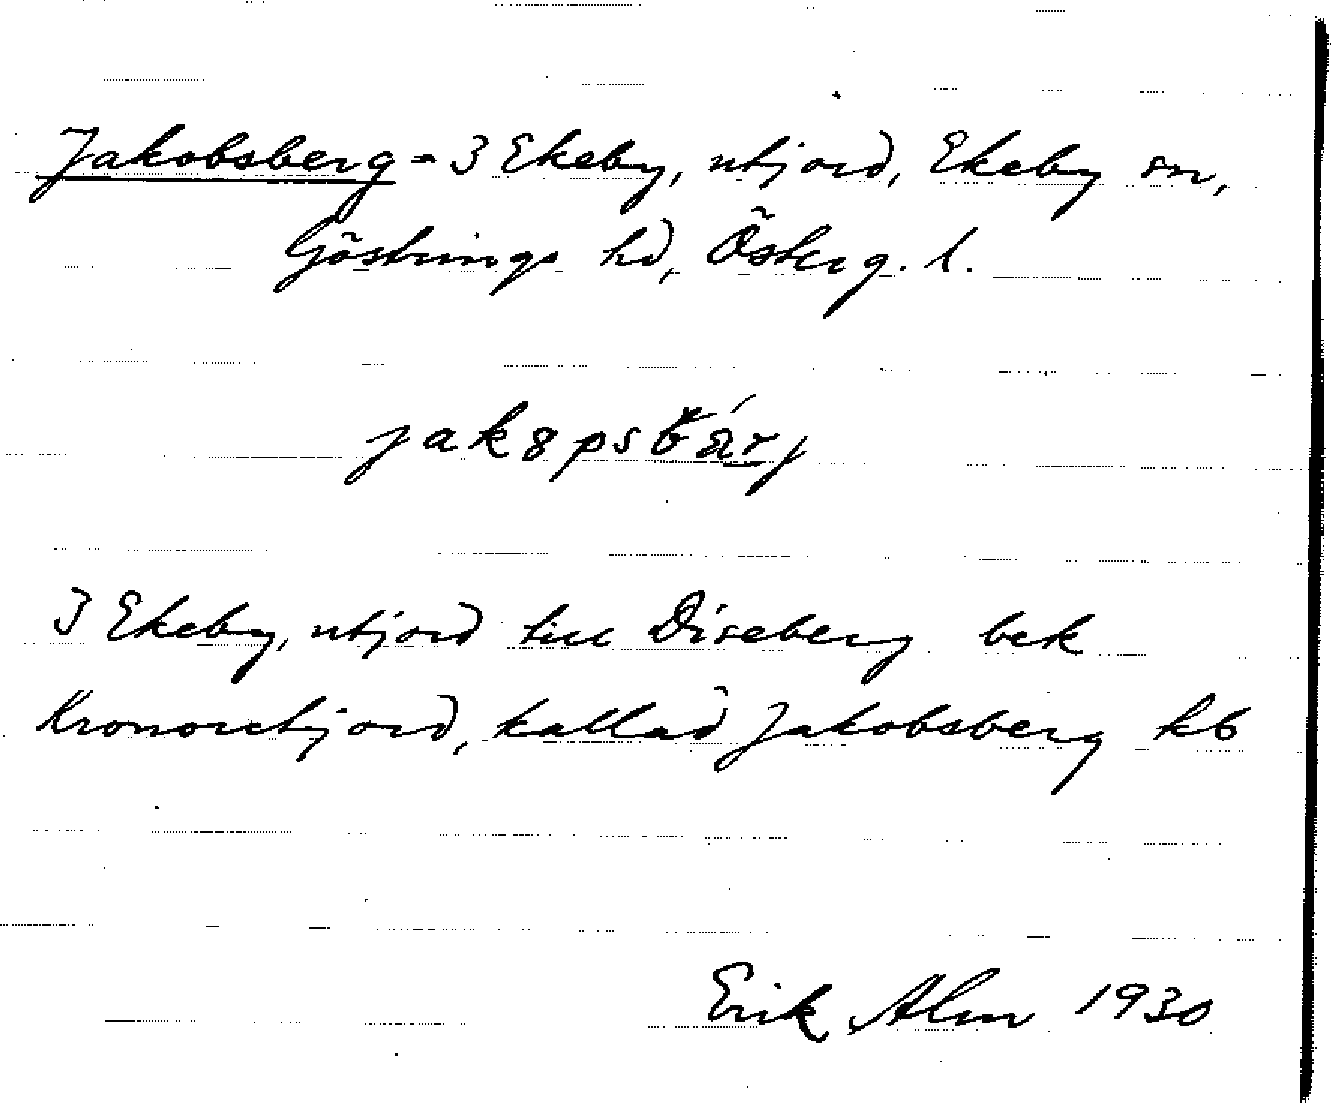 Jakobsberg = 3 Ekeby, utjord, Ekeby sn,
Göstrings hd, Österg. l.
jak8psbärj
3 Ekeby, utjord till Diseberg bek
Kronoutjord, kallad Jakobsberg kb
Erik Alm 1930